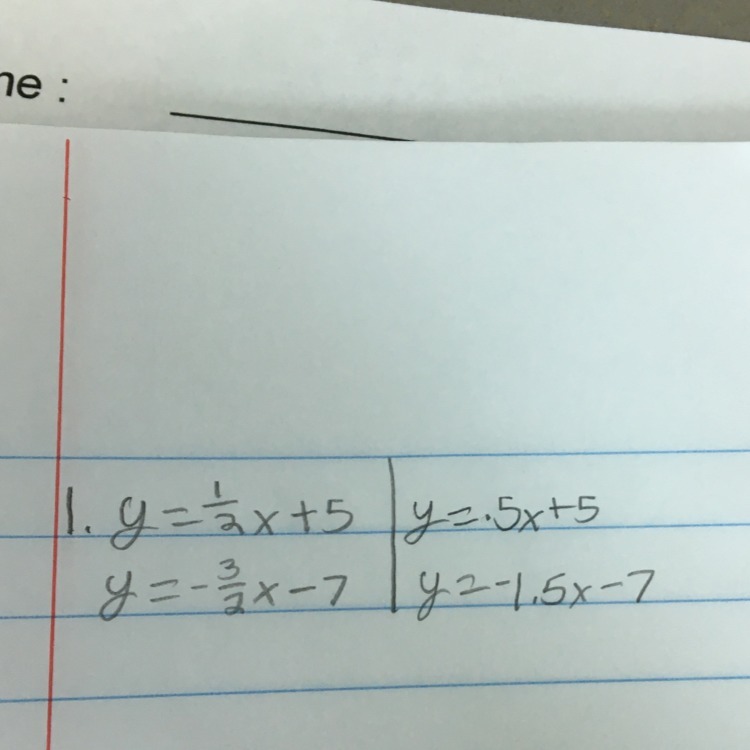 ne :
1. y = 1/2 x + 5 | y = .5x + 5
y = - 3/2 x - 7 | y = -1.5x - 7